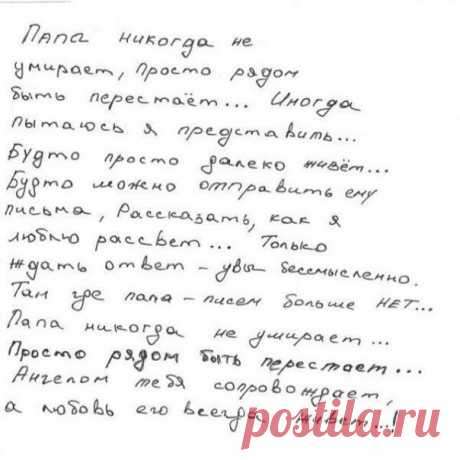 Папа никогда не
умирает, Просто рядом
быть перестаёт... Иногда
пытаюсь я представить...
Будто просто далеко живёт...
Будто можно отправить ему
письма, Рассказать, как я
люблю рассвет... Только
ждать ответ - увы бессмысленно.
Там где папа - писем больше НЕТ...
Папа никогда не умирает...
Просто рядом быть перестает...
Ангелом тебя сопровождает,
а любовь его всегда живет...!
postila.ru